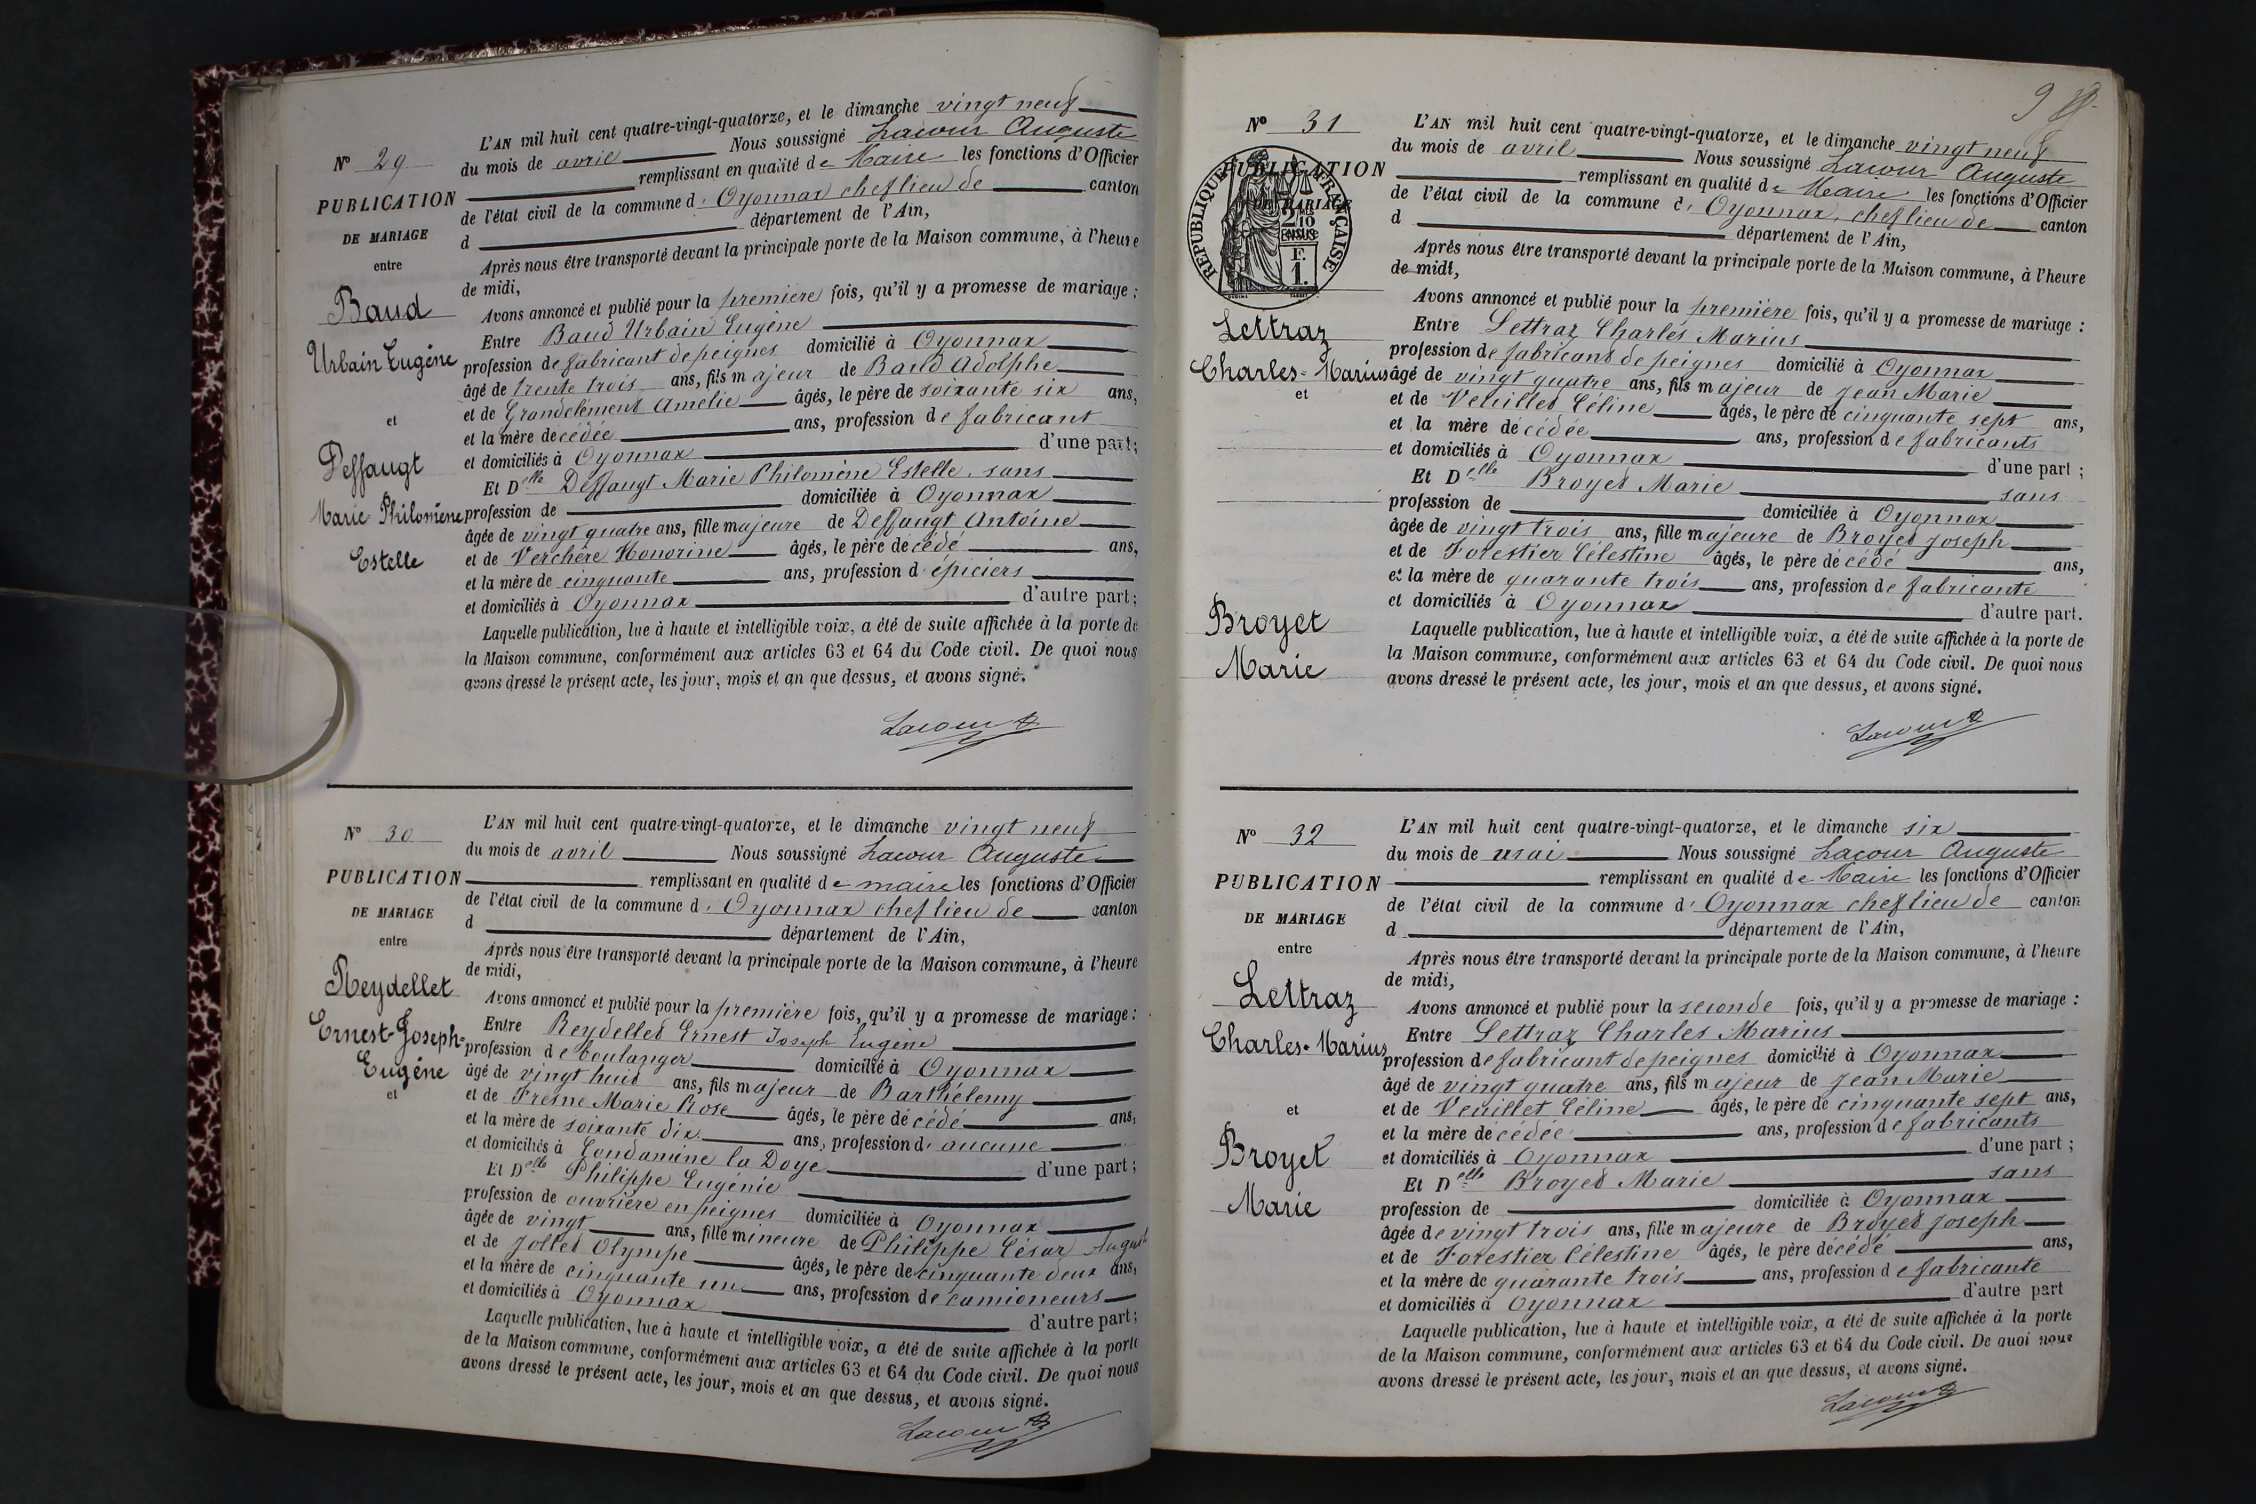 L'AN mil huit cent quatre-vingt-quatorze, et le dimanche vingt neuf
Nº 29 du mois de avril Nous soussigné Lacour Auguste
remplissant en qualité de Maire les fonctions d'Officier
PUBLICATION de l'état civil de la commune d' Oyonnax chef lieu de canton
DE MARIAGE d département de l'Ain,
entre Après nous être transporté devant la principale porte de la Maison commune, à l'heure
de midi,
Baud Avons annoncé et publié pour la première fois, qu'il y a promesse de mariage :
Entre Baud Urbain Eugène
Urbain Eugène profession de fabricant de peignes domicilié à Oyonnax
âgé de trente trois ans, fils majeur de Baud Adolphe
et de Grandclément Amélie âgés, le père de soixante six ans,
et et la mère décédée ans, profession de fabricant
et domiciliés à Oyonnax d'une part;
Deffaugt Et Delle Deffaugt Marie Philomène Estelle, sans
Marie Philomène profession de domiciliée à Oyonnax
âgée de vingt quatre ans, fille majeure de Deffaugt Antoine
Estelle et de Verchère Honorine âgés, le père décédé ans,
et la mère de cinquante ans, profession d'épiciers
et domiciliés à Oyonnax d'autre part;
Laquelle publication, lue à haute et intelligible voix, a été de suite affichée à la porte de
la Maison commune, conformément aux articles 63 et 64 du Code civil. De quoi nous
avons dressé le présent acte, les jour, mois et an que dessus, et avons signé.
Lacour A
L'AN mil huit cent quatre-vingt-quatorze, et le dimanche vingt neuf
Nº 30 du mois de avril Nous soussigné Lacour Auguste
PUBLICATION remplissant en qualité de maire les fonctions d'Officier
de l'état civil de la commune d' Oyonnax chef lieu de canton
DE MARIAGE d département de l'Ain,
entre Après nous être transporté devant la principale porte de la Maison commune, à l'heure
de midi,
Reydellet Avons annoncé et publié pour la première fois, qu'il y a promesse de mariage :
Entre Reydellet Ernest Joseph Eugène
Ernest-Joseph- profession de boulanger domicilié à Oyonnax
Eugéne âgé de vingt huit ans, fils majeur de Barthélemy
et et de Fresne Marie Rose âgés, le père décédé ans,
et la mère de soixante dix ans, profession d' aucune
et domiciliés à Condamine la Doye d'une part;
Et Delle Philippe Eugénie
profession de ouvrière en peignes domiciliée à Oyonnax
âgée de vingt ans, fille mineure de Philippe César August
et de Jollet Olympe âgés, le père de cinquante deux ans,
et la mère de cinquante un ans, profession de camioneurs
et domiciliés à Oyonnax d'autre part;
Laquelle publication, lue à haute et intelligible voix, a été de suite affichée à la porte
de la Maison commune, conformément aux articles 63 et 64 du Code civil. De quoi nous
avons dressé le présent acte, les jour, mois et an que dessus, et avons signé.
Lacour A
9
Nº 31 L'AN mil huit cent quatre-vingt-quatorze, et le dimanche vingt neuf
du mois de avril Nous soussigné Lacour Auguste
PUBLICATION remplissant en qualité de Maire les fonctions d'Officier
DE MARIAGE de l'état civil de la commune d' Oyonnax, chef lieu de canton
RÉPUBLIQUE FRANÇAISE
2/10 EN SUS
F.
1.
d département de l'Ain,
Après nous être transporté devant la principale porte de la Maison commune, à l'heure
de midi,
Avons annoncé et publié pour la première fois, qu'il y a promesse de mariage :
Lettraz Entre Lettraz Charles Marius
profession de fabricant de peignes domicilié à Oyonnax
Charles-Marius âgé de vingt quatre ans, fils majeur de Jean Marie
et et de Veuillet Céline âgés, le père de cinquante sept ans,
et la mère décédée ans, profession de fabricants
et domiciliés à Oyonnax d'une part ;
Et Delle Broyet Marie sans
profession de domiciliée à Oyonnax
âgée de vingt trois ans, fille majeure de Broyet Joseph
et de Forestier Célestine âgés, le père décédé ans,
et la mère de quarante trois ans, profession de fabricante
Broyet et domiciliés à Oyonnax d'autre part.
Marie Laquelle publication, lue à haute et intelligible voix, a été de suite affichée à la porte de
la Maison commune, conformément aux articles 63 et 64 du Code civil. De quoi nous
avons dressé le présent acte, les jour, mois et an que dessus, et avons signé.
Lacour A
Nº 32 L'AN mil huit cent quatre-vingt-quatorze, et le dimanche six
du mois de mai Nous soussigné Lacour Auguste
PUBLICATION remplissant en qualité de Maire les fonctions d'Officier
DE MARIAGE de l'état civil de la commune d' Oyonnax chef lieu de canton
d département de l'Ain,
entre Après nous être transporté devant la principale porte de la Maison commune, à l'heure
de midi,
Lettraz Avons annoncé et publié pour la seconde fois, qu'il y a promesse de mariage :
Entre Lettraz Charles Marius
Charles-Marius profession de fabricant de peignes domicilié à Oyonnax
âgé de vingt quatre ans, fils majeur de Jean Marie
et et de Veuillet Céline âgés, le père de cinquante sept ans,
et la mère décédée ans, profession de fabricants
Broyet et domiciliés à Oyonnax d'une part ;
Et Delle Broyet Marie sans
Marie profession de domiciliée à Oyonnax
âgée de vingt trois ans, fille majeure de Broyet Joseph
et de Forestier Célestine âgés, le père décédé ans,
et la mère de quarante trois ans, profession de fabricante
et domiciliés à Oyonnax d'autre part
Laquelle publication, lue à haute et intelligible voix, a été de suite affichée à la porte
de la Maison commune, conformément aux articles 63 et 64 du Code civil. De quoi nous
avons dressé le présent acte, les jour, mois et an que dessus, et avons signé.
Lacour A